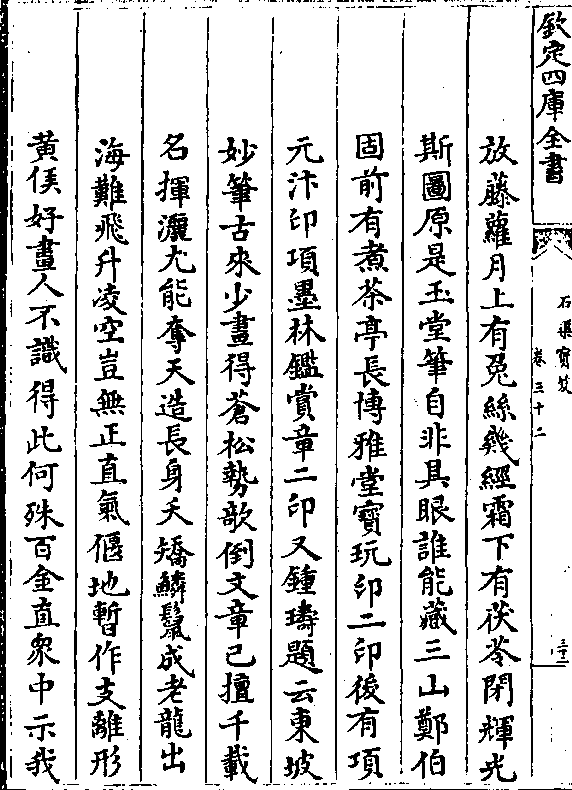 欽定四庫全書
石渠寶笈
卷三十二
三十二
放藤蘿月上有兔絲幾經霜下有茯苓閉輝光
斯圖原是玉堂筆自非具眼誰能藏三山鄭伯
固前有煮茶亭長博雅堂寶玩印二印後有項
元汴印項墨林鑑賞章二印又鍾璹題云東坡
妙筆古來少畫得蒼松勢欹倒文章已擅千載
名揮灑尤能奪天造長身夭矯鱗鬛成老龍出
海難飛升凌空豈無正直氣偃地暫作支離形
黄侯好畫人不識得此何殊百金直衆中示我